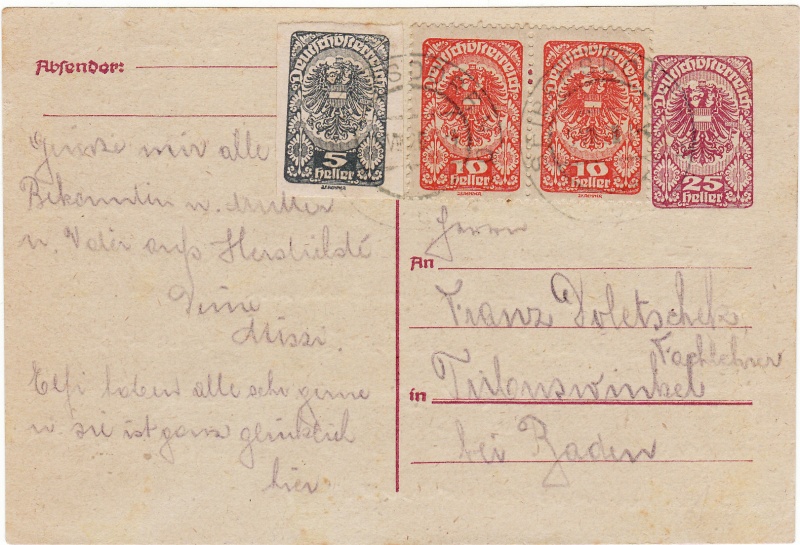 Absender:
Deutschösterreich
5
Heller
Deutschösterreich
10
Heller
Deutschösterreich
10
Heller
Deutschösterreich
25
Heller
Grüsse mir alle
Bekannten u. Mutter
u. Vater aufs Herzlichste
Deine
Missi.
Elfi haben alle sehr gerne
u. sie ist ganz glücklich
hier
Herrn
An
Franz Doletschek
Fachlehrer
in Tribuswinkel
bei Baden